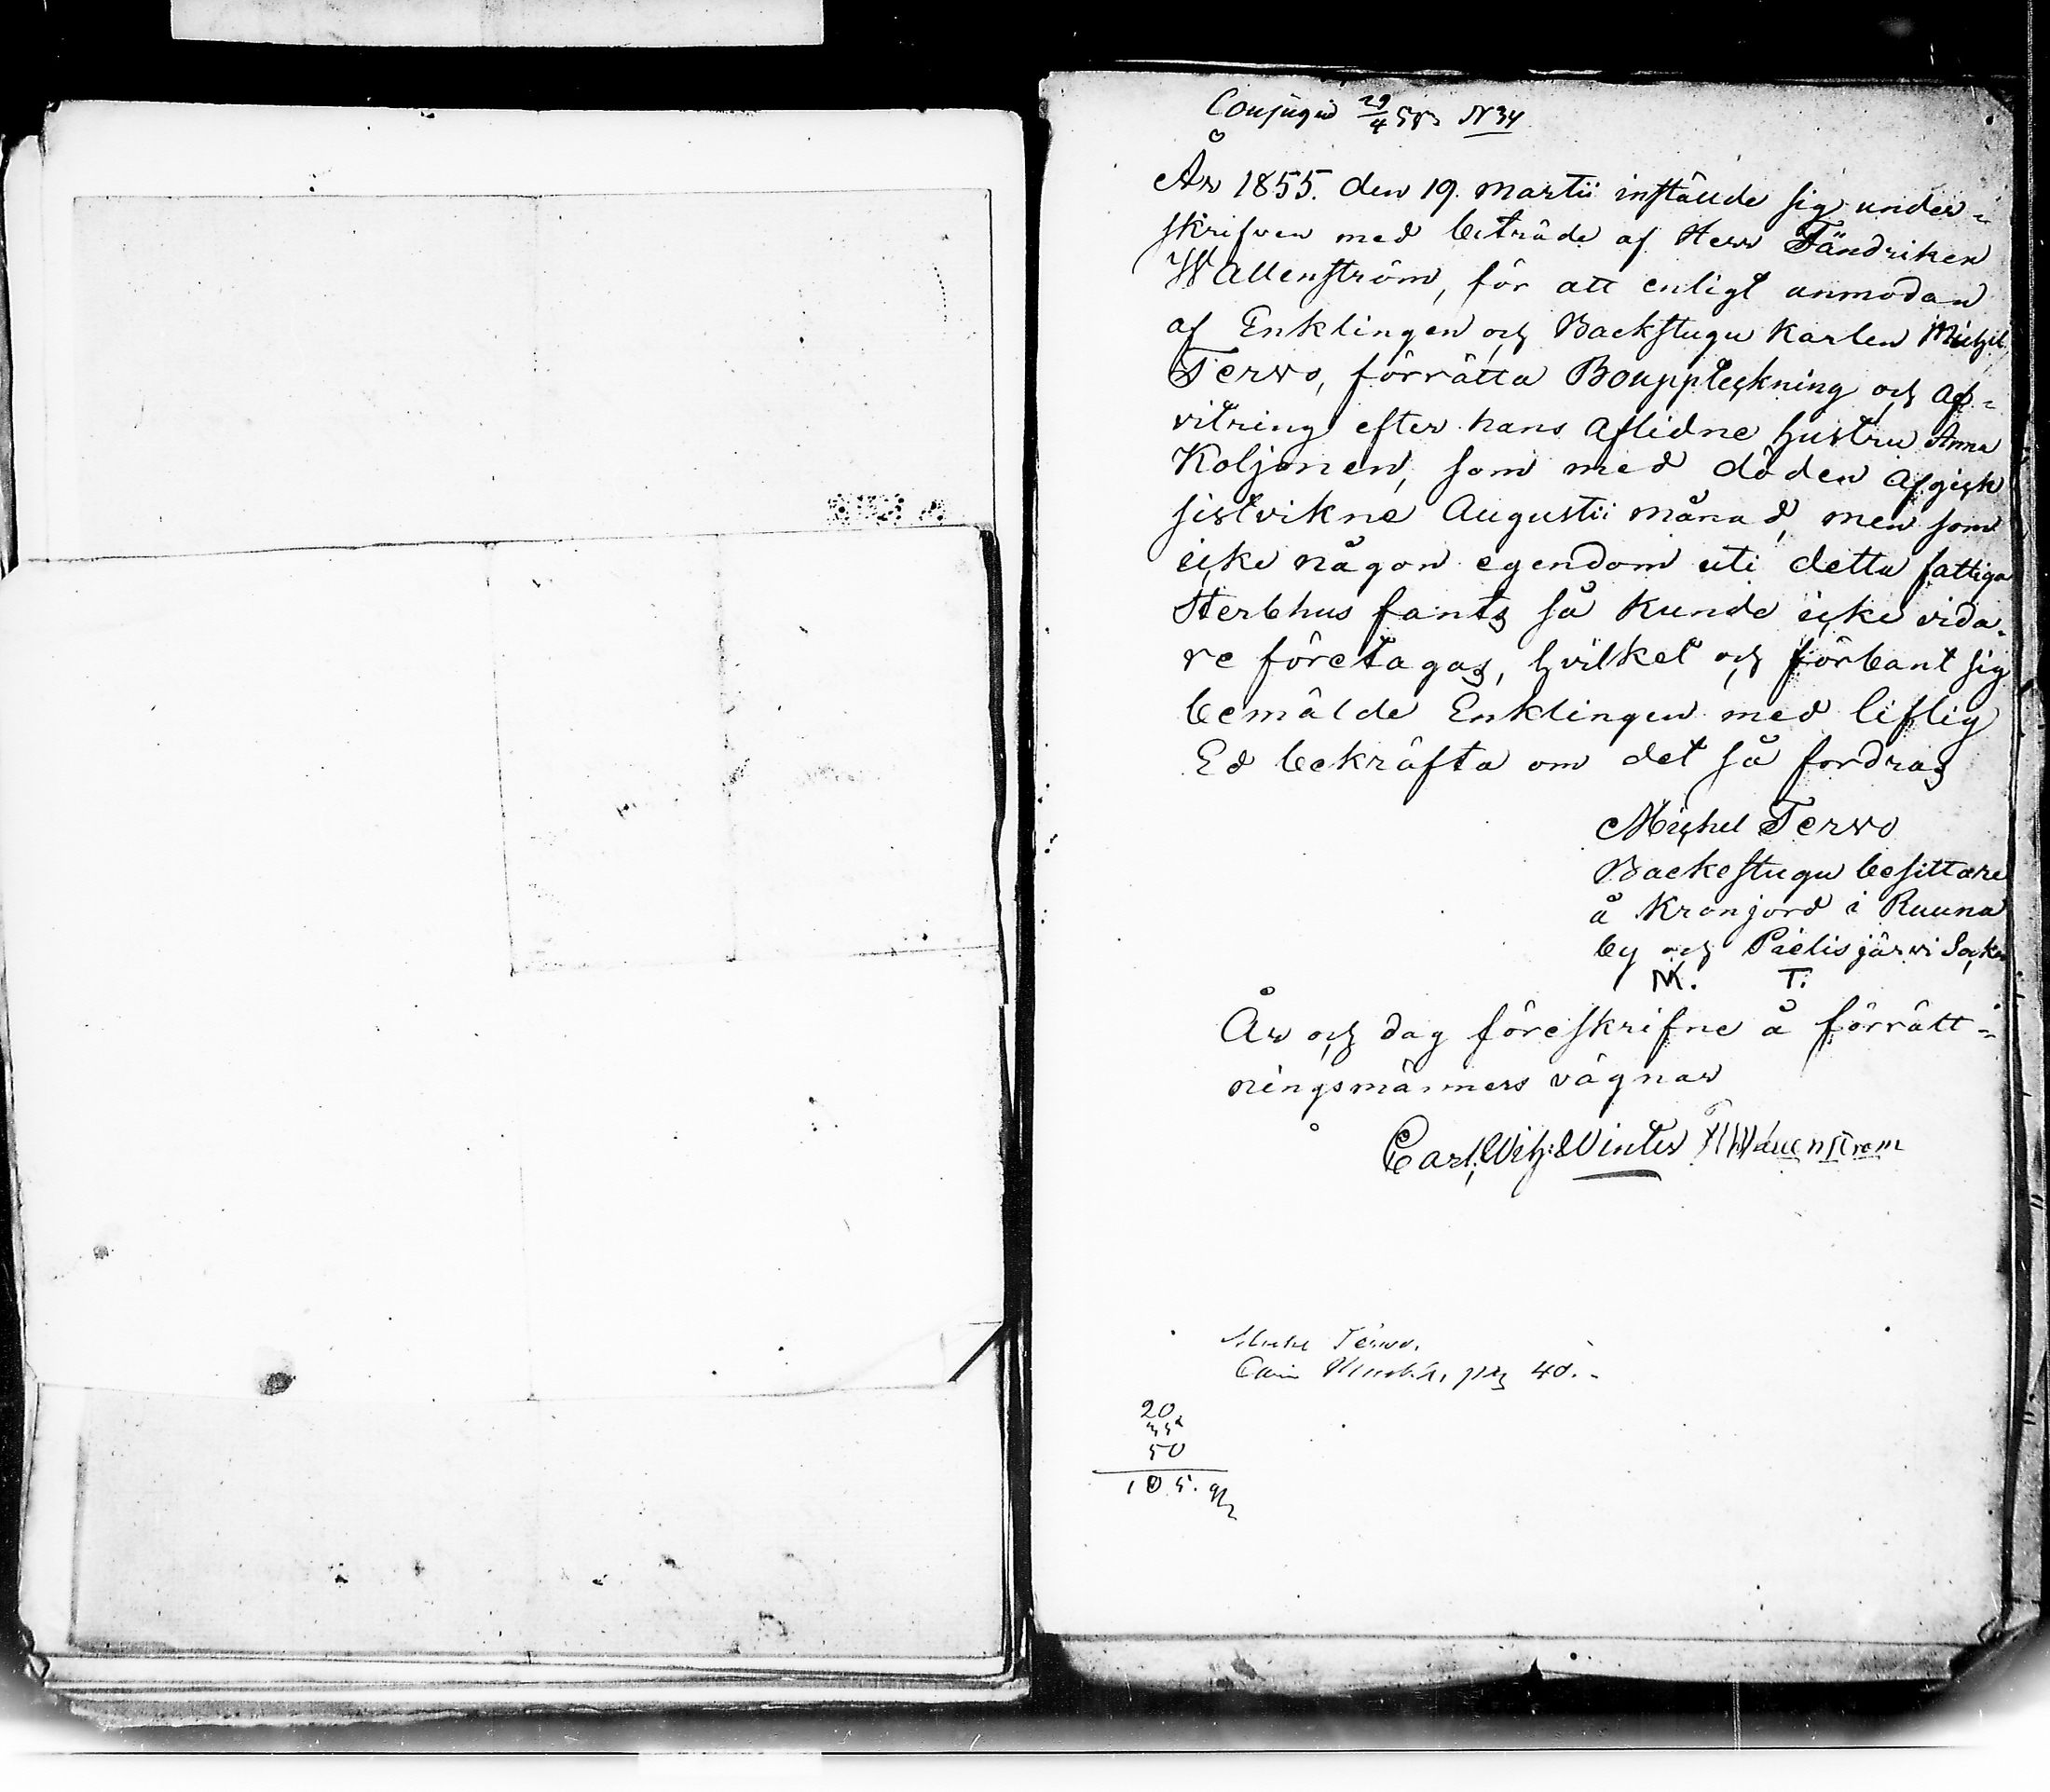 Conjugin 29/4 55 N 34
År 1855. den 19. Martii instälde sig under-
skrifven med biträde af Herr Fändriken
Wallenström, för att enligt anmodan
af Enklingen och Backstugu Karlen Michel
Tervo, förrätta Bouppteckning och af-
vitring efter hans aflidne hustru Anna
Koljonen, som med döden afgick
sistvikne Augustii månad, men som
icke någon egendom uti detta fattiga
Sterbhus fants så kunde icke vida-
re företagas, hvilket och förbant sig
bemälde Enklingen med liflig
Ed bekräfta om det så fordras
Michel Tervo
Backestugu besittare
å Kronjord i Ruuna
by och Pielisjärvi Socken
M. T.
År och dag föreskrifne å förrätt-
ningsmänners vägnar
Carl Wilh: Winter Wallenström
Michel Tervo.
40.
20.
35
50
105.